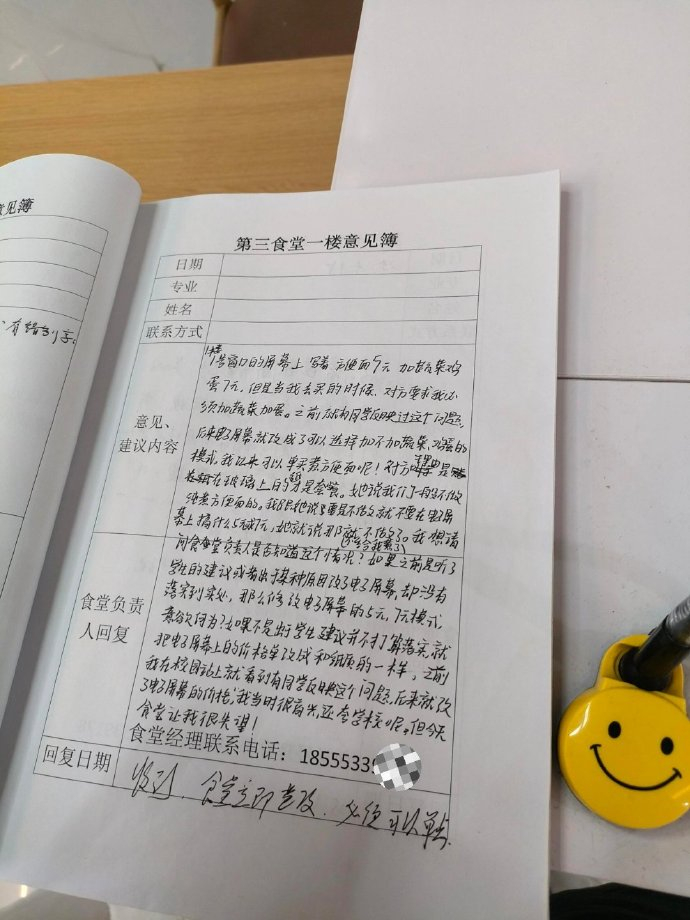 意见簿
有错别字。
第三食堂一楼意见簿
日期
专业
姓名
联系方式
意见、
建议内容
1号窗口的屏幕上写着方便面5元 加蔬菜鸡
蛋7元，但是当我去买的时候，对方要求我必
须加蔬菜加蛋。之前就有同学反映过这个问题，
后来电子屏幕就改成了可以选择加不加蔬菜、鸡蛋的
模式。我以来可以单买煮方便面呢！对方理由是
在玻璃上的是套餐。她说我们一般不做
纯煮方便面的。我跟她说要是不做就不要在电子屏
幕上搞什么5元7元，她就说那就不做了。我想请
(没给我煮了)
问食堂负责人是否知道这个情况？如果之前是听了
学生的建议或者出于某种原因改了电子屏幕，却没有
落实到实处，那么修改电子屏幕的5元，7元模式，
意欲何为？如果不是出于学生建议并不打算落实，就
把电子屏幕上的价格单改成和纸质的一样，之前
我在校园论上就看到有同学反映这个问题，后来就改
了电子屏幕的价格，我当时很高兴，还夸学校呢。但今天
食堂让我很失望！
食堂负责
人回复
食堂经理联系电话：18555339
回复日期
收到，食堂立即整改，必须可以单点.